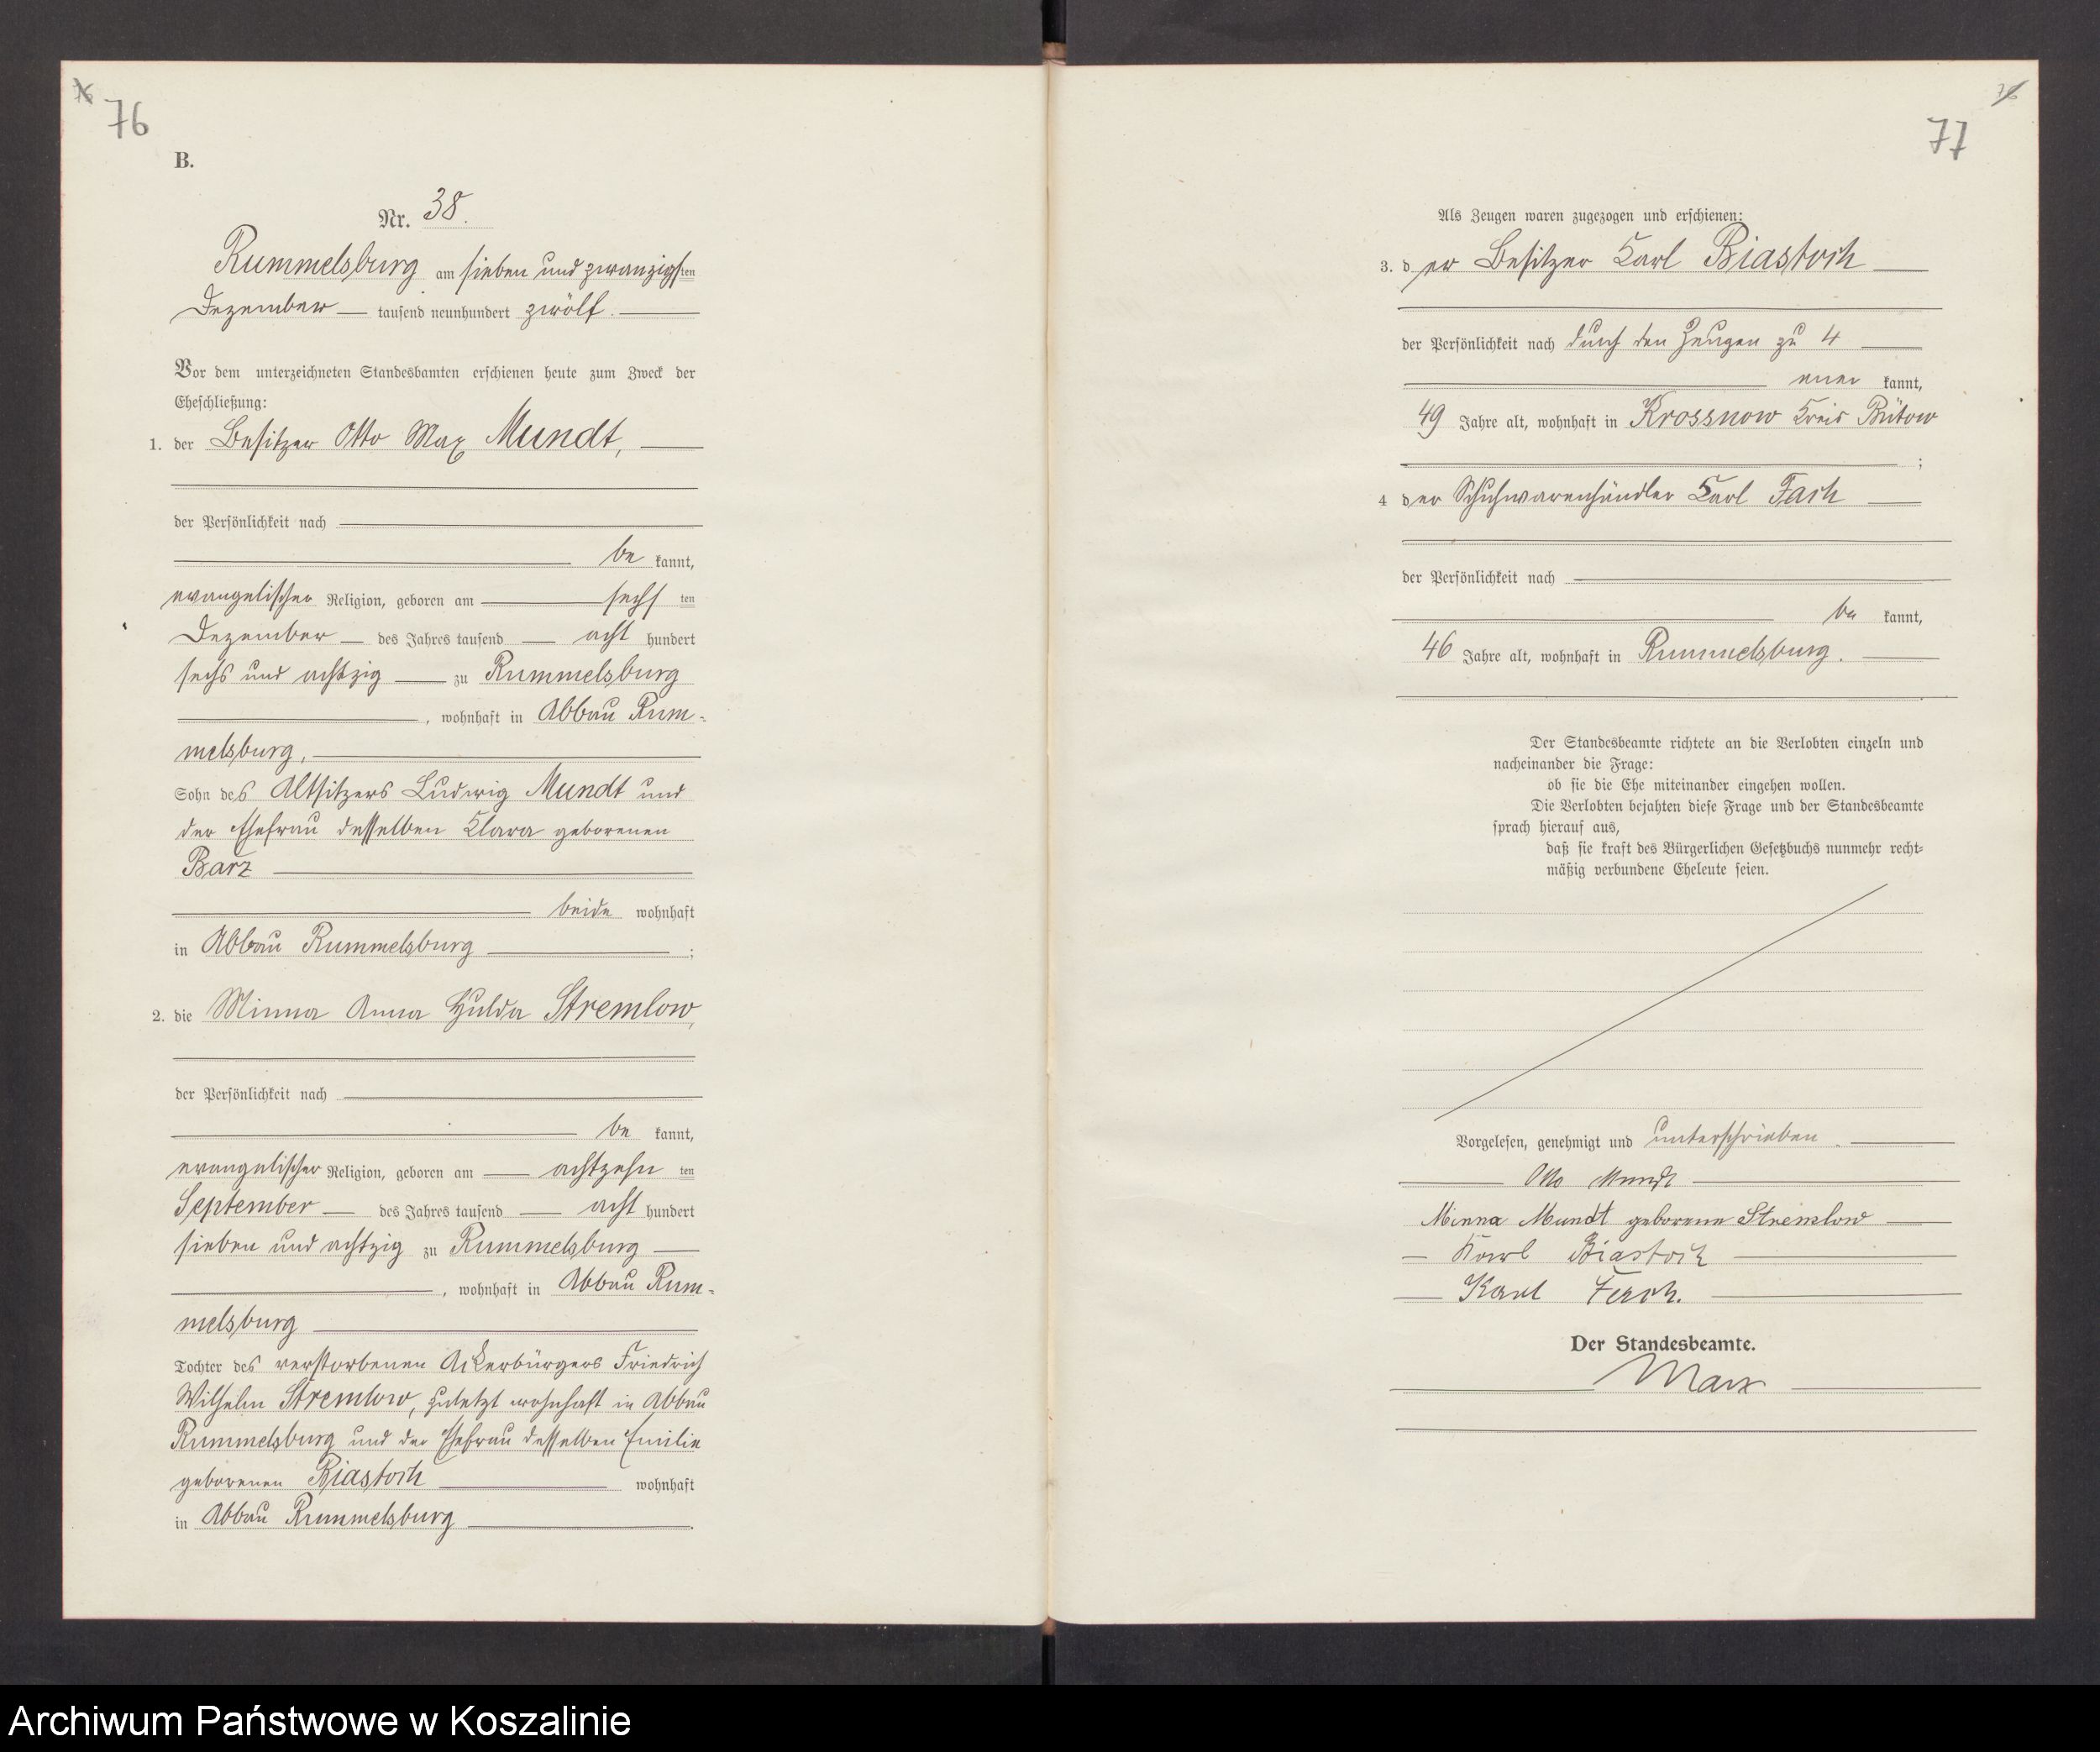 76
B.
Nr. 38.
Rummelsburg am sieben und zwanzigsten
Dezember tausend neunhundert zwölf.
Vor dem unterzeichneten Standesbamten erschienen heute zum Zweck der
Eheschließung:
1. der Besitzer Otto Max Mundt,
der Persönlichkeit nach
be kannt,
evangelischer Religion, geboren am sechsten
Dezember des Jahres tausend acht hundert
sechs und achtzig zu Rummelsburg
, wohnhaft in Abbau Rum-
melsburg,
Sohn des Altsitzers Ludwig Mundt und
der Ehefrau desselben Clara geborenen
Barz
beide wohnhaft
in Abbau Rummelsburg ;
2. die Minna Anna Hulda Stremlow,
der Persönlichkeit nach
be kannt,
evangelischer Religion, geboren am achtzehn ten
September des Jahres tausend acht hundert
sieben und achtzig zu Rummelsburg
, wohnhaft in Abbau Rum-
melsburg
Tochter des verstorbenen Ackerbürgers Friedrich
Wilhelm Stremlow, zuletzt wohnhaft in Abbau
Rummelsburg und der Ehefrau desselben Emilie
geborenen Biastoch wohnhaft
in Abbau Rummelsburg.
77
Als Zeugen waren zugezogen und erschienen:
3. der Besitzer Karl Biastoch
der Persönlichkeit nach durch den Zeugen zu 4
aner kannt,
49 Jahre alt, wohnhaft in Krossnow Kreis Bütow
;
4 der Schuhwarenhändler Karl Fach
der Persönlichkeit nach
be kannt,
46 Jahre alt, wohnhaft in Rummelsburg.
Der Standesbeamte richtete an die Verlobten einzeln und
nacheinander die Frage:
ob sie die Ehe miteinander eingehen wollen.
Die Verlobten bejahten diese Frage und der Standesbeamte
sprach hierauf aus,
daß sie kraft des Bürgerlichen Gesetzbuchs nunmehr recht-
mäßig verbundene Eheleute seien.
Vorgelesen, genehmigt und unterschrieben.
Otto Mundt
Minna Mundt geborene Stremlow
Karl Biastoch
Karl Fach.
Der Standesbeamte.
Marx
Archiwum Państwowe w Koszalinie